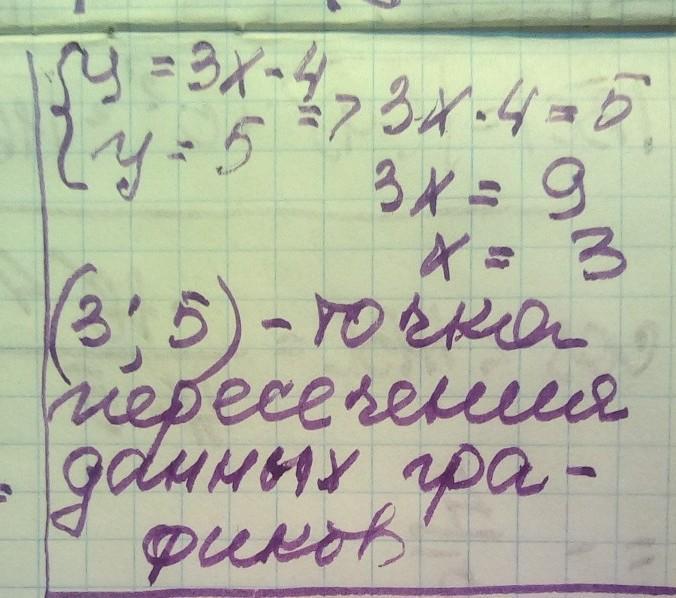 { y = 3x - 4
y = 5 => 3x - 4 = 5
3x = 9
x = 3
(3; 5) - точка
пересечения
данных гра-
фиков